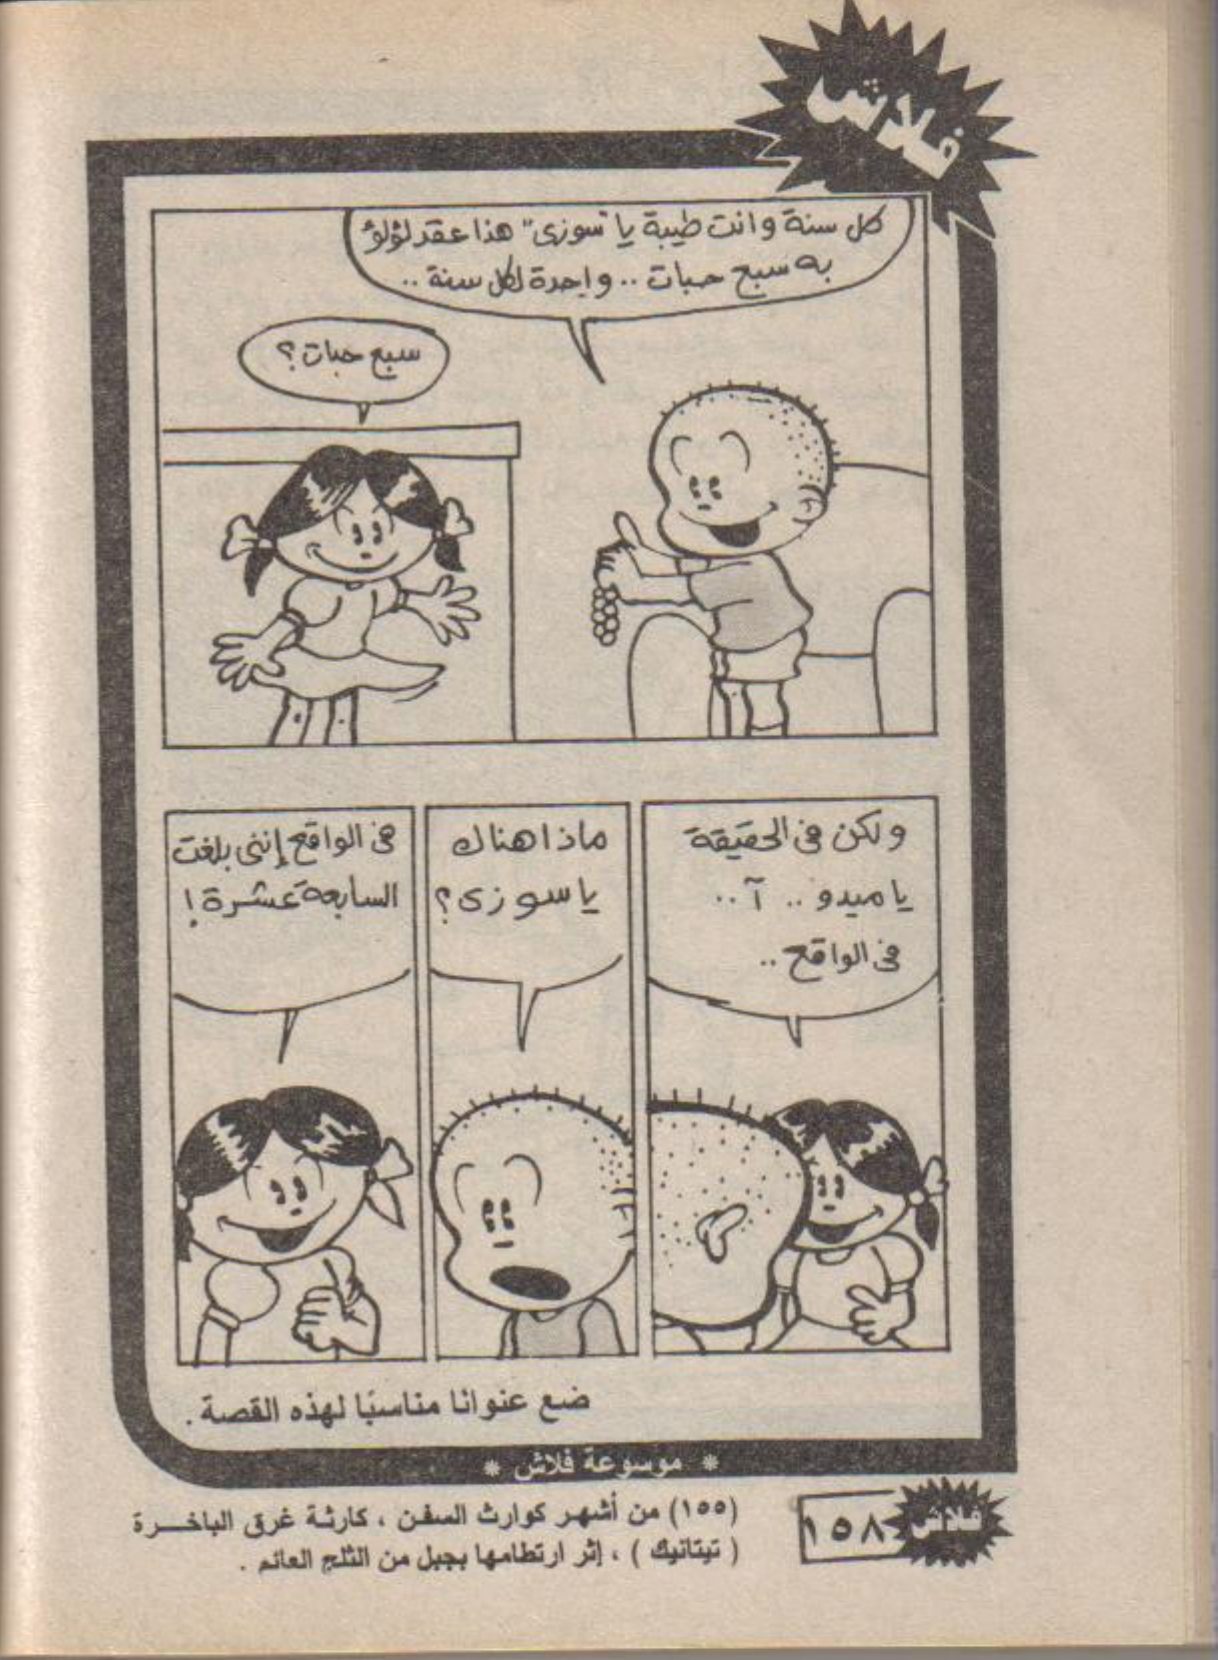 فلاش
كل سنة وانت طيبة يا "سوزى" هذا عقد لؤلؤ
به سبع حبات .. واحدة لكل سنة ..
سبع حبات ؟
ولكن فى الحقيقة
يا ميدو .. آ ..
فى الواقع ..
ماذا هناك
يا سوزى ؟
فى الواقع إننى بلغت
السابعة عشرة !
ضع عنوانا مناسبًا لهذه القصة .
* موسوعة فلاش *
فلاش
١٥٨
(١٥٥) من أشهر كوارث السفن ، كارثة غرق الباخرة
( تيتانيك ) ، إثر ارتطامها بجبل من الثلج العائم .